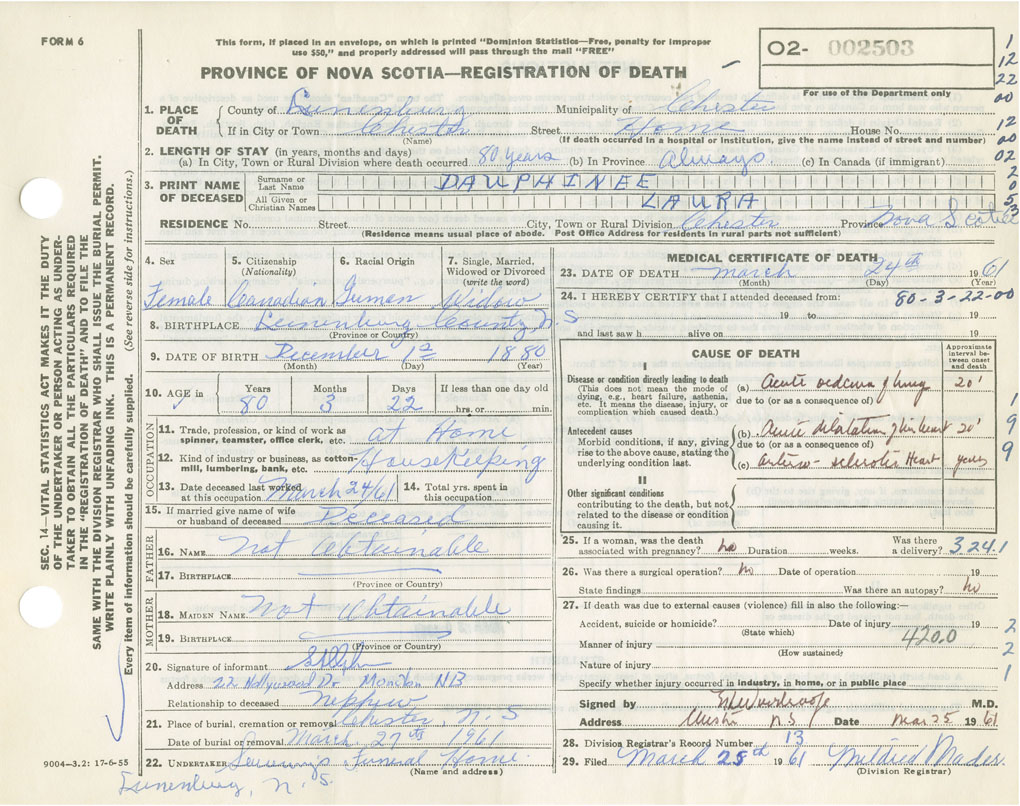 FORM 6
This form, if placed in an envelope, on which is printed "Dominion Statistics—Free, penalty for improper
use $50," and properly addressed will pass through the mail "FREE"
PROVINCE OF NOVA SCOTIA—REGISTRATION OF DEATH
O2- 002503
For use of the Department only
1
12
22
00
12
00
02
2
0
5
3
SEC. 14—VITAL STATISTICS ACT MAKES IT THE DUTY
OF THE UNDERTAKER OR PERSON ACTING AS UNDER-
TAKER TO OBTAIN ALL THE PARTICULARS REQUIRED
IN THE "REGISTRATION OF DEATH" AND TO FILE THE
SAME WITH THE DIVISION REGISTRAR WHO SHALL ISSUE THE BURIAL PERMIT.
WRITE PLAINLY WITH UNFADING INK. THIS IS A PERMANENT RECORD.
Every item of information should be carefully supplied. (See reverse side for instructions.)
1. PLACE OF DEATH County of Lunenburg Municipality of Chester
If in City or Town Chester Street Home House No.
(Name) (If death occurred in a hospital or institution, give the name instead of street and number)
2. LENGTH OF STAY (in years, months and days)
(a) In City, Town or Rural Division where death occurred 80 years (b) In Province Always. (c) In Canada (if immigrant)
3. PRINT NAME OF DECEASED Surname or Last Name DAUPHINEE
All Given or Christian Names LAURA
RESIDENCE No. Street City, Town or Rural Division Chester Province Nova Scotia
(Residence means usual place of abode. Post Office Address for residents in rural parts not sufficient)
4. Sex 5. Citizenship (Nationality) 6. Racial Origin 7. Single, Married, Widowed or Divorced (write the word)
Female Canadian German Widow
8. BIRTHPLACE Lunenburg County N. S
(Province or Country)
9. DATE OF BIRTH December 1st 1880
(Month) (Day) (Year)
10. AGE in Years Months Days If less than one day old
80 3 22 hrs. or min.
OCCUPATION
11. Trade, profession, or kind of work as spinner, teamster, office clerk, etc. at Home
12. Kind of industry or business, as cotton-mill, lumbering, bank, etc. HouseKeeping
13. Date deceased last worked at this occupation March 24/61 14. Total yrs. spent in this occupation
15. If married give name of wife or husband of deceased Deceased
FATHER
16. NAME Not Obtainable
17. BIRTHPLACE
(Province or Country)
MOTHER
18. MAIDEN NAME Not Obtainable
19. BIRTHPLACE
(Province or Country)
20. Signature of informant
Address 22 Hollywood Dr Moncton NB
Relationship to deceased Nephew
21. Place of burial, cremation or removal Chester, N. S
Date of burial or removal March 27th 1961
22. UNDERTAKER Funeral Home
(Name and address)
9004—3.2: 17-6-55
Lunenburg, N. S.
MEDICAL CERTIFICATE OF DEATH
23. DATE OF DEATH March 24th 1961
(Month) (Day) (Year)
24. I HEREBY CERTIFY that I attended deceased from: 80-3-22-00
19 to 19
and last saw h alive on 19
CAUSE OF DEATH
Approximate interval between onset and death
I
Disease or condition directly leading to death
(This does not mean the mode of dying, e.g., heart failure, asthenia, etc. It means the disease, injury, or complication which caused death.)
(a) Acute oedema of lung 20'
due to (or as a consequence of)
Antecedent causes
Morbid conditions, if any, giving rise to the above cause, stating the underlying condition last.
(b) Acute dilatation of her heart 20'
due to (or as a consequence of)
(c) arterio-sclerotic Heart years
II
Other significant conditions
contributing to the death, but not related to the disease or condition causing it.
1
9
9
25. If a woman, was the death associated with pregnancy? no Duration weeks. Was there a delivery? 3241
26. Was there a surgical operation? no Date of operation 19
State findings Was there an autopsy? no
27. If death was due to external causes (violence) fill in also the following:—
Accident, suicide or homicide? Date of injury 19
(State which)
420.0
Manner of injury
(How sustained)
Nature of injury
Specify whether injury occurred in industry, in home, or in public place
2
2
1
Signed by M.D.
Address N.S Date Mar 25 1961
28. Division Registrar's Record Number 13
29. Filed March 25th 1961 Mildred Mader
(Division Registrar)